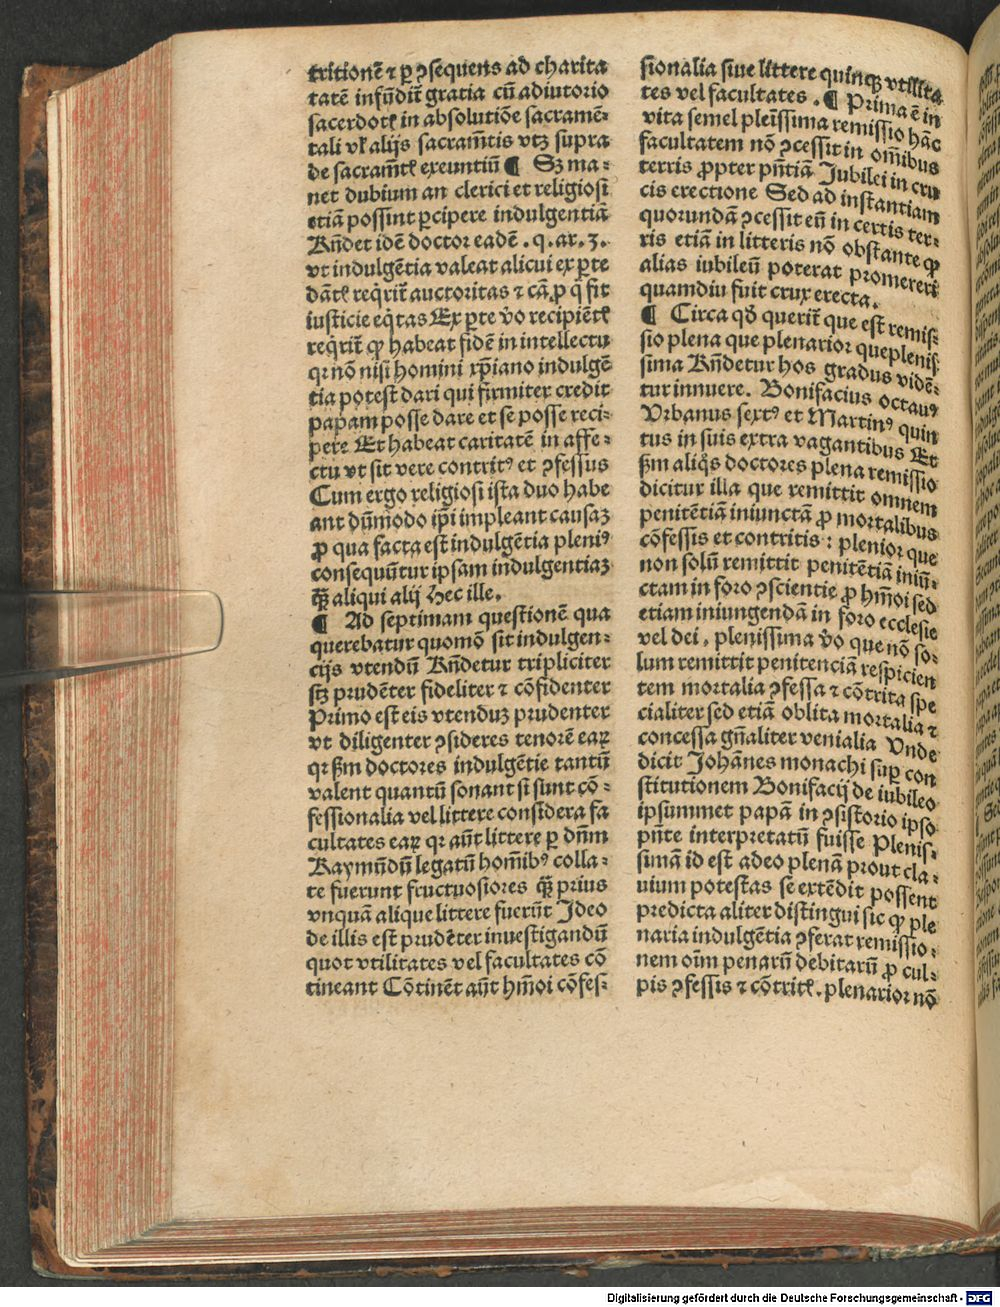 tritionē ⁊ ꝑ ꝯsequens ad charita
tatē infūdit̃ gratia cū adiutorio
sacerdotꝭ in absolutiōe sacramē⸗
tali vl̓ alijs sacram̄tis vtꝫ supra
de sacram̄tꝭ exeuntiū ¶ Sꝫ ma⸗
net dubium an clerici et religiosi
etiā possint ꝑcipere indulgentiā
Rn̄det idē doctor eadē . q . ar . 3 .
vt indulgētia valeat alicui ex ꝑte
dātꝭ reqͥrit̃ auctoritas ⁊ cā ꝓ q̄ fit
iusticie eqͥtas Ex ꝑte v̓o recipiētꝭ
reqͥrit̃ ꝙ habeat fidē in intellectu
qꝛ nō nisi homini xp̄iano indulgē
tia potest dari qui firmiter credit
papam posse dare et se posse reci⸗
pere Et habeat caritatē in affe⸗
ctu vt sit vere contritꝰ et ꝯfessus
Cum ergo religiosi ista duo habe
ant dūmodo ip̄i impleant causaꝫ
ꝓ qua facta est indulgētia pleniꝰ
consequūtur ipsam indulgentiaꝫ
ꝙ̄ aliqui alij Hec ille.
¶ Ad septimam questionē qua
querebatur quomō sit indulgen⸗
cijs vtendū Rn̄detur tripliciter
sꝫ prudēter fideliter ⁊ cōfidenter
Primo est eis vtenduꝫ prudenter
vt diligenter ꝯsideres tenorē eaꝝ
qꝛ ẜm doctores indulgētie tantū
valent quantū sonant si sunt cō⸗
fessionalia vel littere considera fa
cultates eaꝝ qꝛ aūt littere ꝑ dn̄m
Raymūdū legatū homībꝰ colla⸗
te fuerunt fructuosiores ꝙ̄ prius
vnquā alique littere fuerūt Ideo
de illis est prudēter inuestigandū
quot vtilitates vel facultates cō
tineant Cōtinēt aūt hm̄oi cōfes⸗
sionalia siue littere quinqꝫ vtilita
tes vel facultates . ¶ Prima ē in
vita semel pleīssima remissio hāc
facultatem nō ꝯcessit in om̄ibus
terris ꝓpter pn̄tiā Jubilei in cru
cis erectione Sed ad instantiam
quorundā ꝯcessit eñ in certis ter⸗
ris etiā in litteris nō obstante ꝙ
alias iubileū poterat promereri
quamdiu fuit crux erecta.
¶ Circa qđ querit̃ que est remis⸗
sio plena que plenarior que plenis
sima Rn̄detur hos gradus vidē⸗
tur innuere . Bonifacius octauꝰ
Vrbanus sextꝰ et Martinꝰ quin
tus in suis extra vagantibus Et
ẜm aliqͦs doctores plena remissio
dicitur illa que remittit omnem
penitētiā iniunctā ꝓ mortalibus
cōfessis et contritis : plenior que
non solū remittit penitētiā iniū⸗
ctam in foro ꝯscientie ꝓ hm̄oi sed
etiam iniungendā in foro ecclesie
vel dei . plenissima v̓o que nō so⸗
lum remittit penitenciā respicien
tem mortalia ꝯfessa ⁊ cōtrita spe
cialiter sed etiā oblita mortalia ⁊
concessa gn̄aliter venialia Vnde
dicit Johānes monachi suꝑ con
stitutionem Bonifacij de iubileo
ipsummet papā in ꝯsistorio ipso
pn̄te interpretatū fuisse Plenis⸗
simā id est adeo plenā prout cla⸗
uium potestas se extēdit possent
predicta aliter distingui sic ꝙ ple
naria indulgētia ꝯferat remissio⸗
nem oīm penarū debitarū ꝓ cul⸗
pis ꝯfessis ⁊ cōtritꝭ . plenarior nō
Digitalisierung gefördert durch die Deutsche Forschungsgemeinschaft - DFG